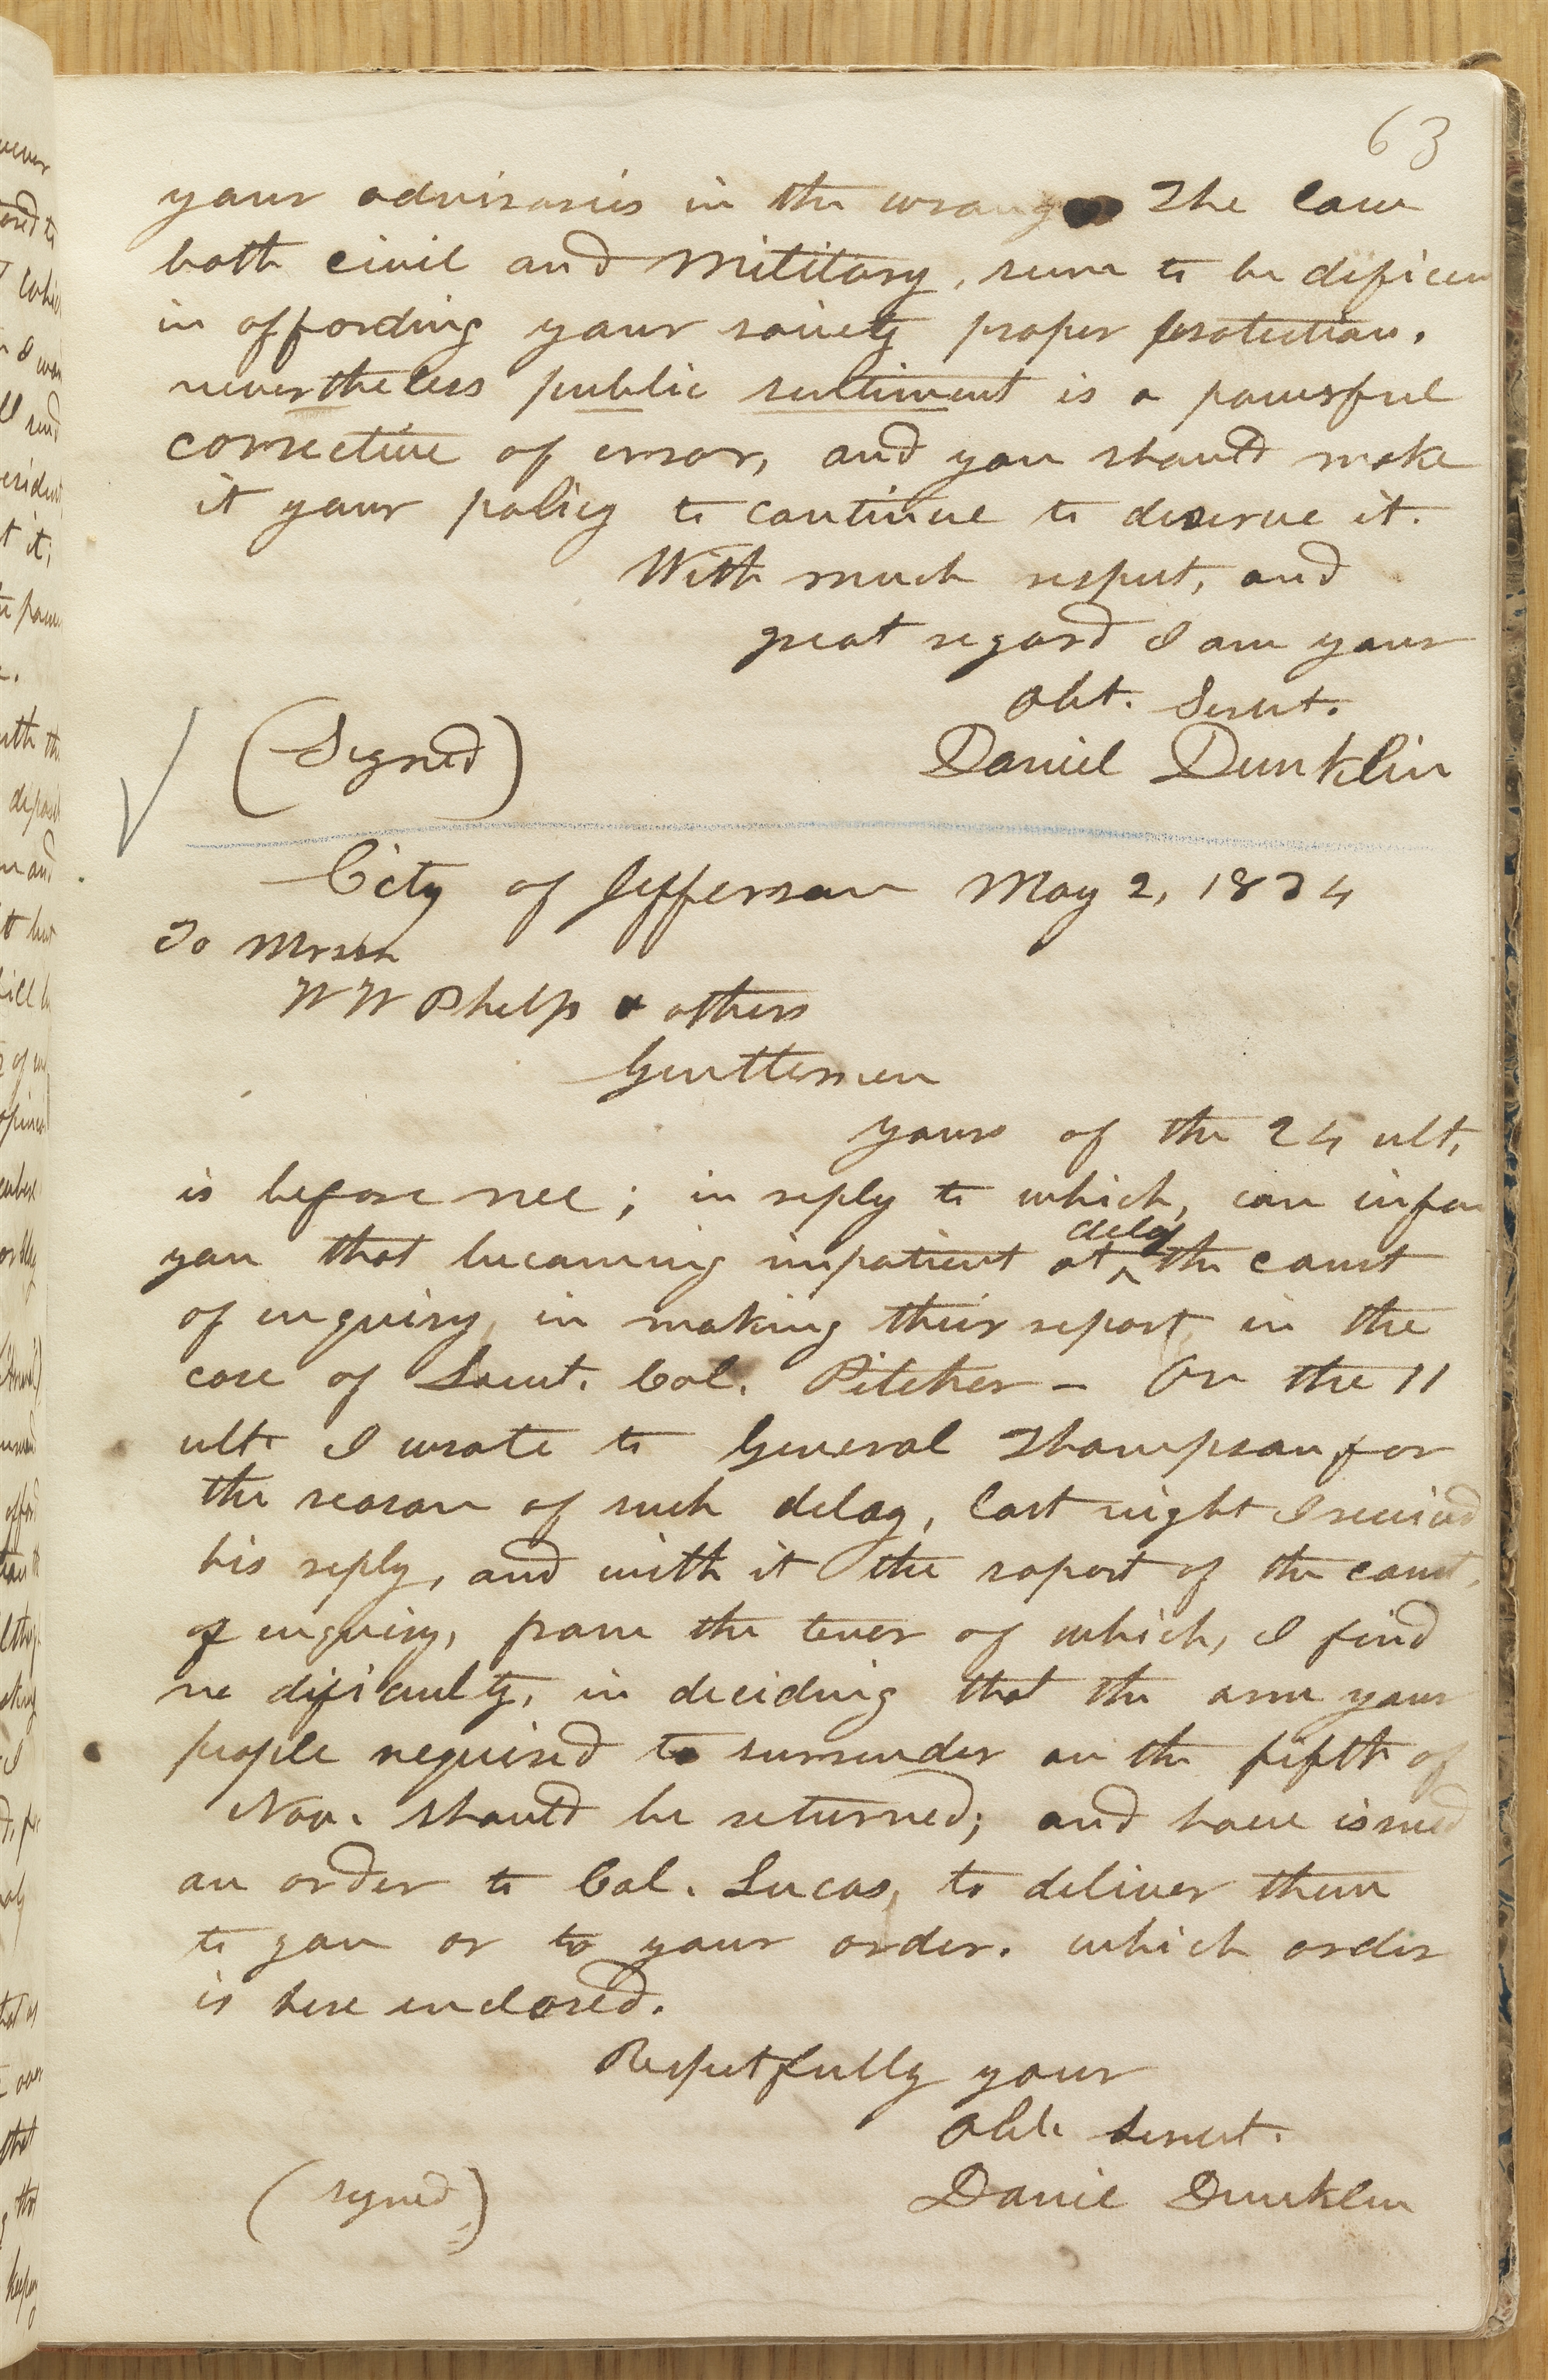 63
your advirsaries in the wrong The law
both civil and military, seem to be dificien
in affording your society proper protection.
nevertheless public sentiment is a powerful
corrective of error, and you should make
it your policy to continue to deserve it.
With much respect, and
great regard I am your
obt. Servt.
(Signed) Daniel Dunklin
City of Jefferson May 2, 1834
To Mrssr
W W Phelps & others
Gentlemen
yours of the 24 ult,
is before me; in reply to which, can infor
you that becoming impatient at delay the court
of enquiry, in making their report in the
case of Lieut. Col. Pitcher – On the 11
ult. I wrote to General Thompson for
the reason of such delay, last night I received
his reply, and with it the raport of the court,
of enquiry, from the tener of which, I find
no dificulty, in deciding that the arm your
people required to surrender on the fifth of
Nov. should be returned; and have issued
an order to Col. Lucas, to deliver them
to you or to your order. which order
is here inclosed.
Respectfully your
Obt. Servt.
(signed) Daniel Dunklin